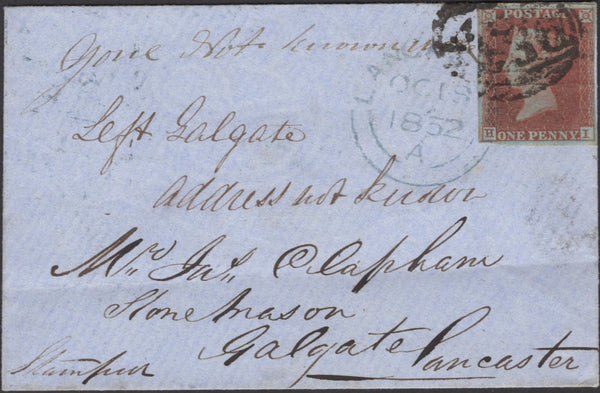 POSTAGE
Gone Not known
LANC
OC
1852
A
H ONE PENNY I
Left Galgate
address not known
Mr. Jas. Clapham
Stone Mason
Galgate
Lancaster
Stamped